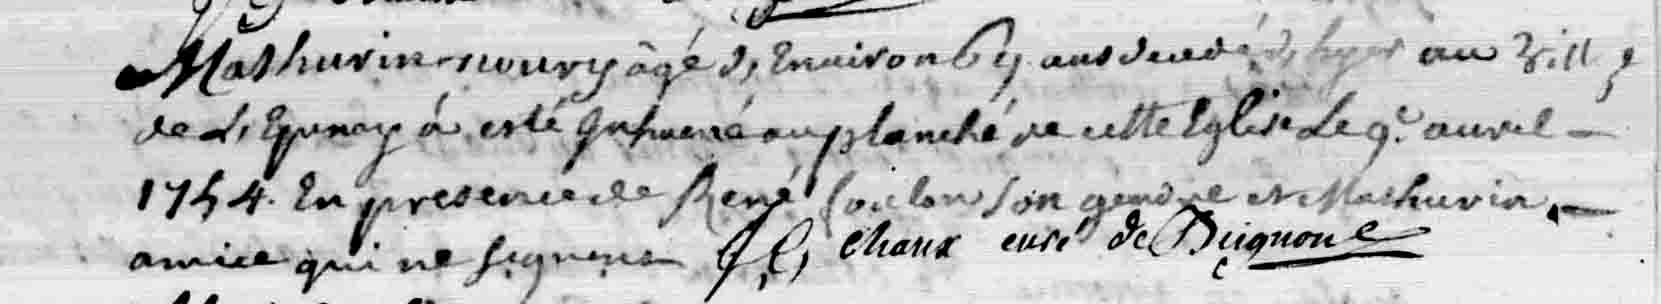 Mathurin noury âgé d, Environ 69 ans decedé d, hyer au vill,e
de L, Epinay a esté Inhumé au planché de cette Eglise Le 9.e auvril
1754. En presence de René Coulon son gendre et Mathurin
amice qui ne signent J, C, Chaux curé de Beignon